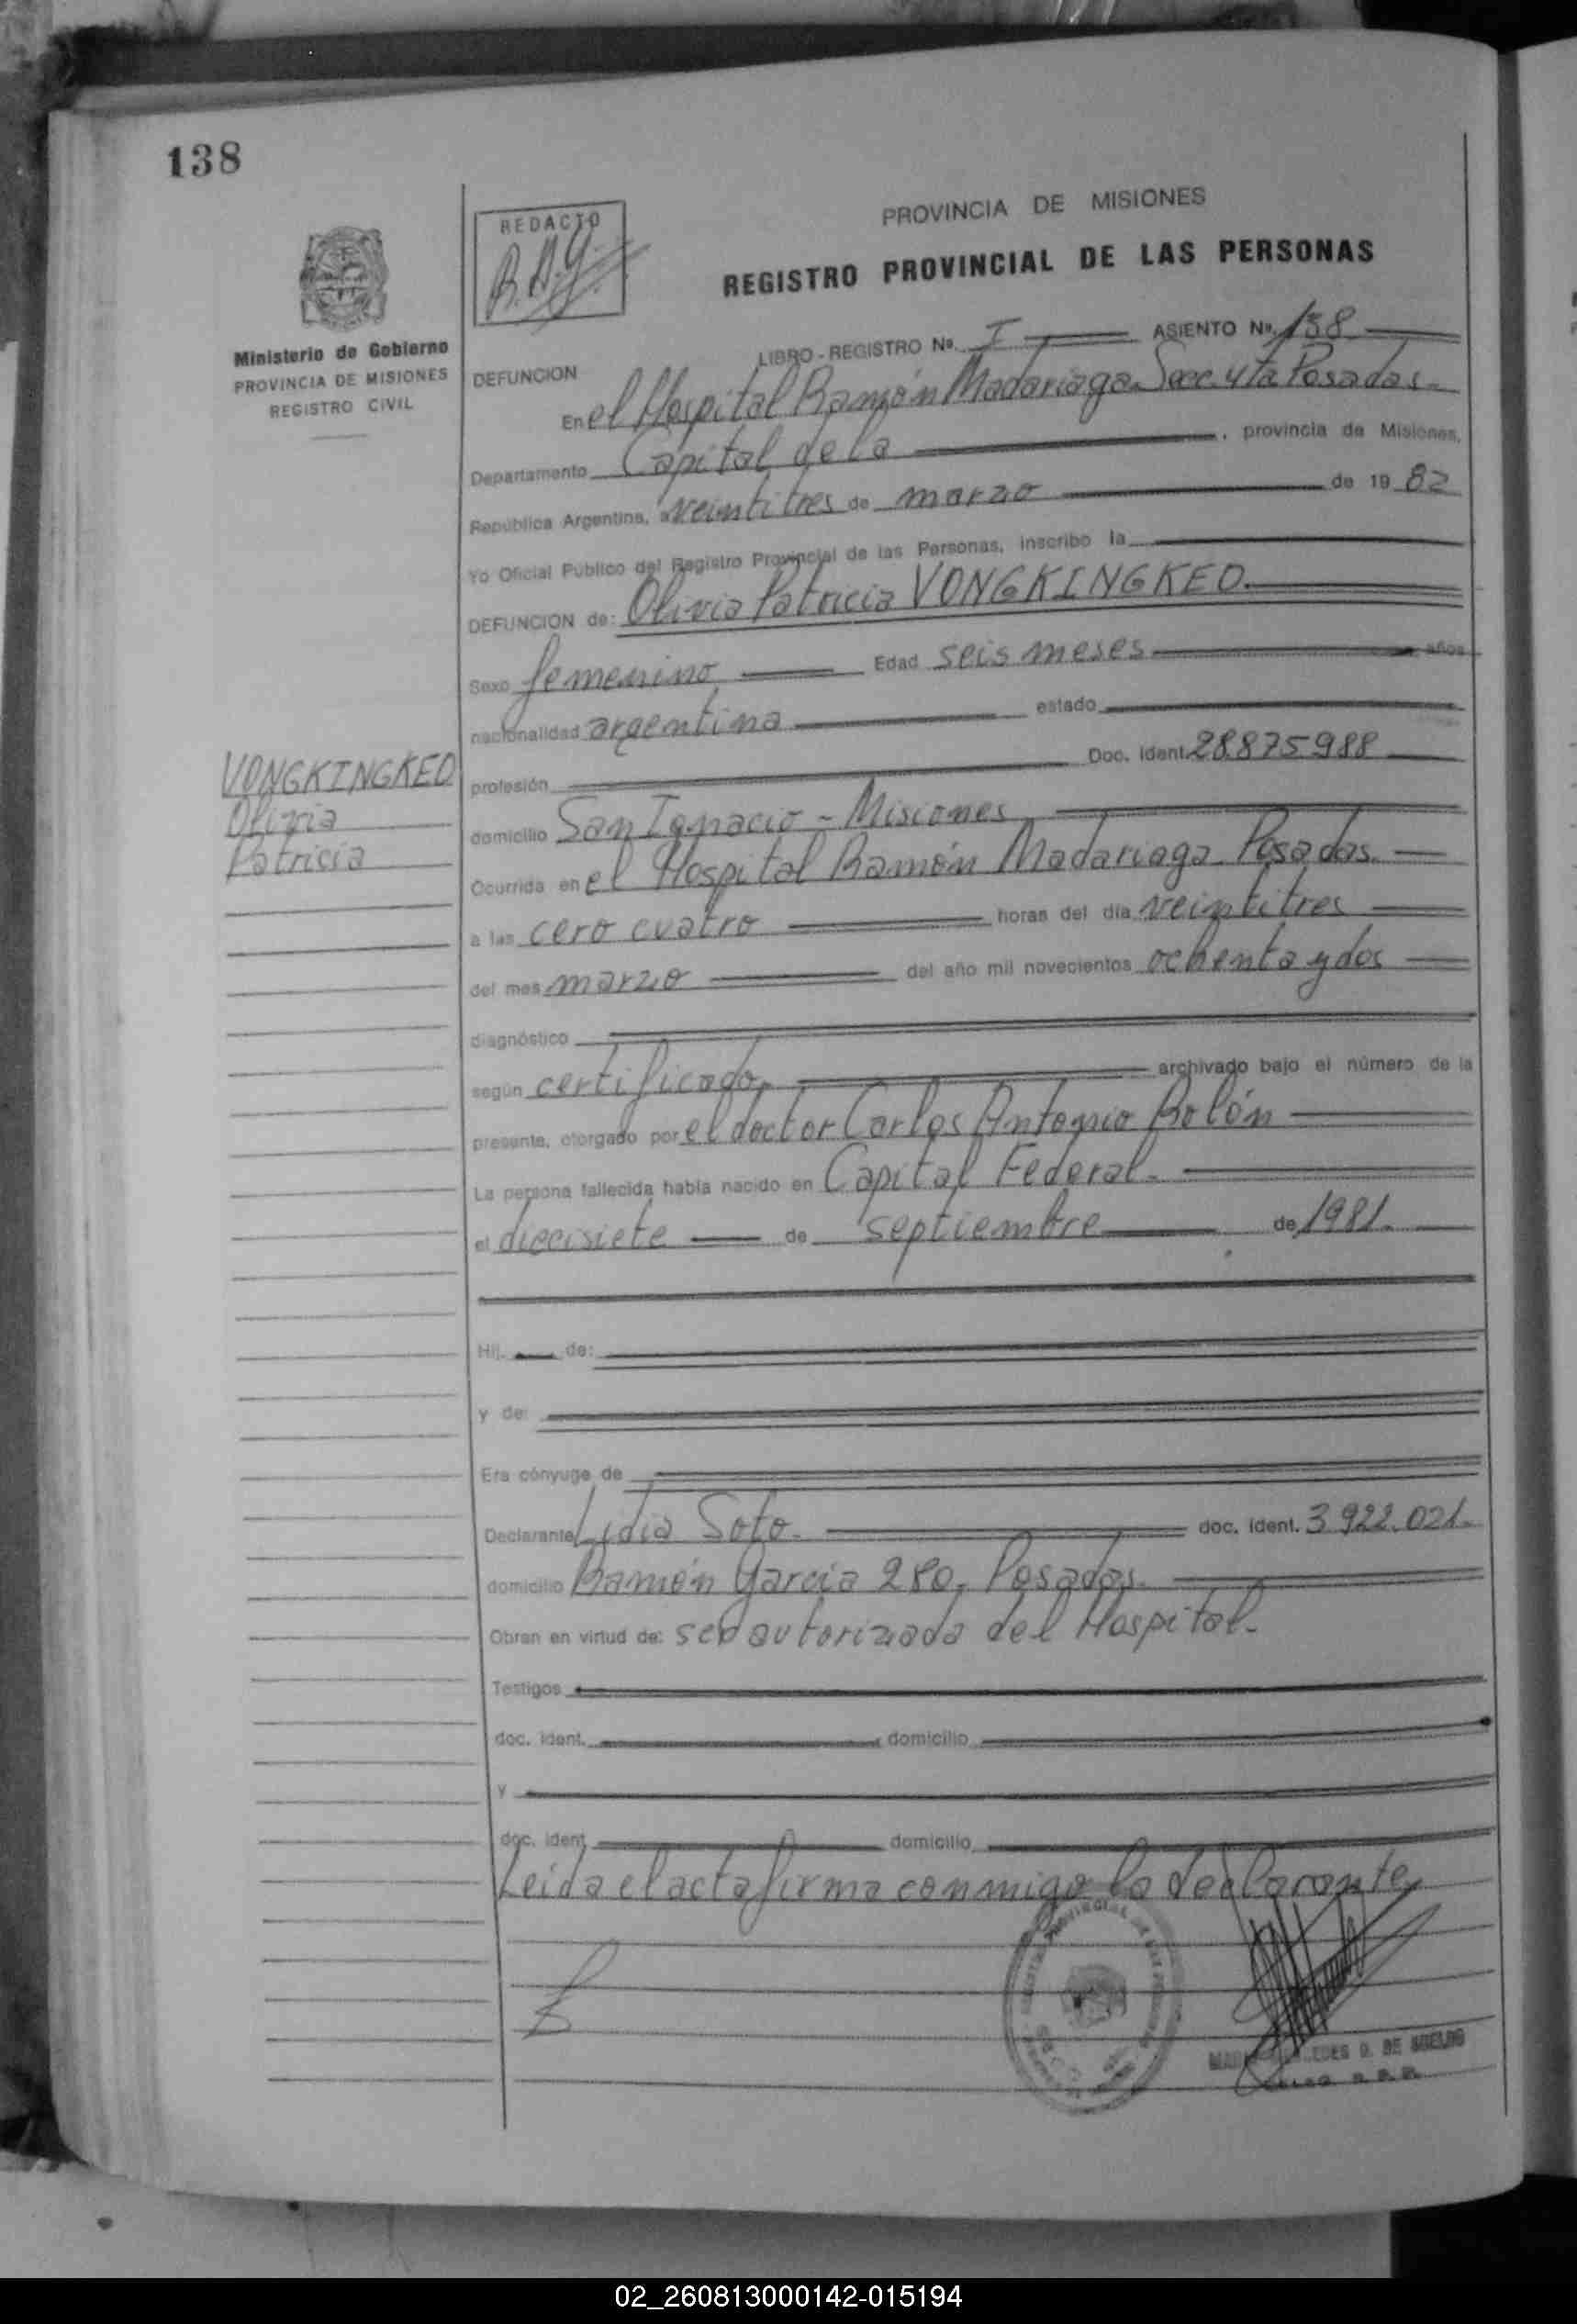 138
REDACTO
R.A.G.
PROVINCIA DE MISIONES
REGISTRO PROVINCIAL DE LAS PERSONAS
Ministerio de Gobierno
PROVINCIA DE MISIONES
REGISTRO CIVIL
LIBRO - REGISTRO Nº. I ASIENTO Nº. 138
DEFUNCION
En el Hospital Ramón Madariaga. Secc. 4ta Posadas.
Departamento Capital de la , provincia de Misiones,
República Argentina, a veintitres de marzo de 1982
Yo Oficial Público del Registro Provincial de las Personas, inscribo la
DEFUNCION de: Olivia Patricia VONGKINGKEO.
Sexo femenino Edad seis meses años
nacionalidad argentina estado
VONGKINGKEO
Olivia
Patricia
profesión Doc. Ident. 28.875.988
domicilio San Ignacio - Misiones
Ocurrida en el Hospital Ramón Madariaga Posadas.
a las cero cuatro horas del día veintitres
del mes marzo del año mil novecientos ochenta y dos
diagnóstico
según certificado, archivado bajo el número de la
presente, otorgado por el doctor Carlos Antonio Rolón
La persona fallecida había nacido en Capital Federal.
el diecisiete de septiembre de 1981.
Hij. de:
y de:
Era cónyuge de
Declarante Lidia Soto. doc. ident. 3.922.021.
domicilio Ramón Garcia 280, Posadas.
Obran en virtud de: ser autorizada del Hospital.
Testigos
doc. ident. domicilio
y
doc. ident. domicilio
Leida el acta firma conmigo la declarante,
DE SUELDO
02_260813000142-015194